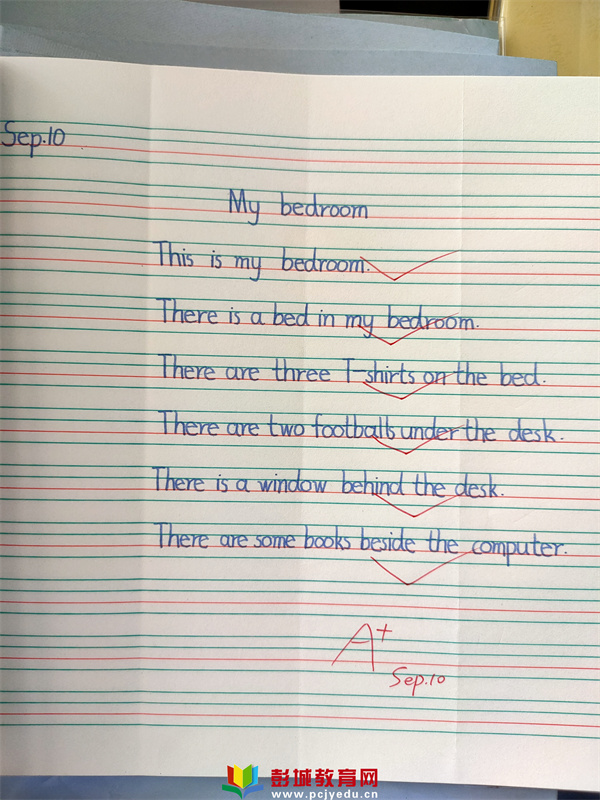 Sep.10
My bedroom
This is my bedroom.
There is a bed in my bedroom.
There are three T-shirts on the bed.
There are two footballs under the desk.
There is a window behind the desk.
There are some books beside the computer.
A+
Sep.10
彭城教育网
www.pcjyedu.cn